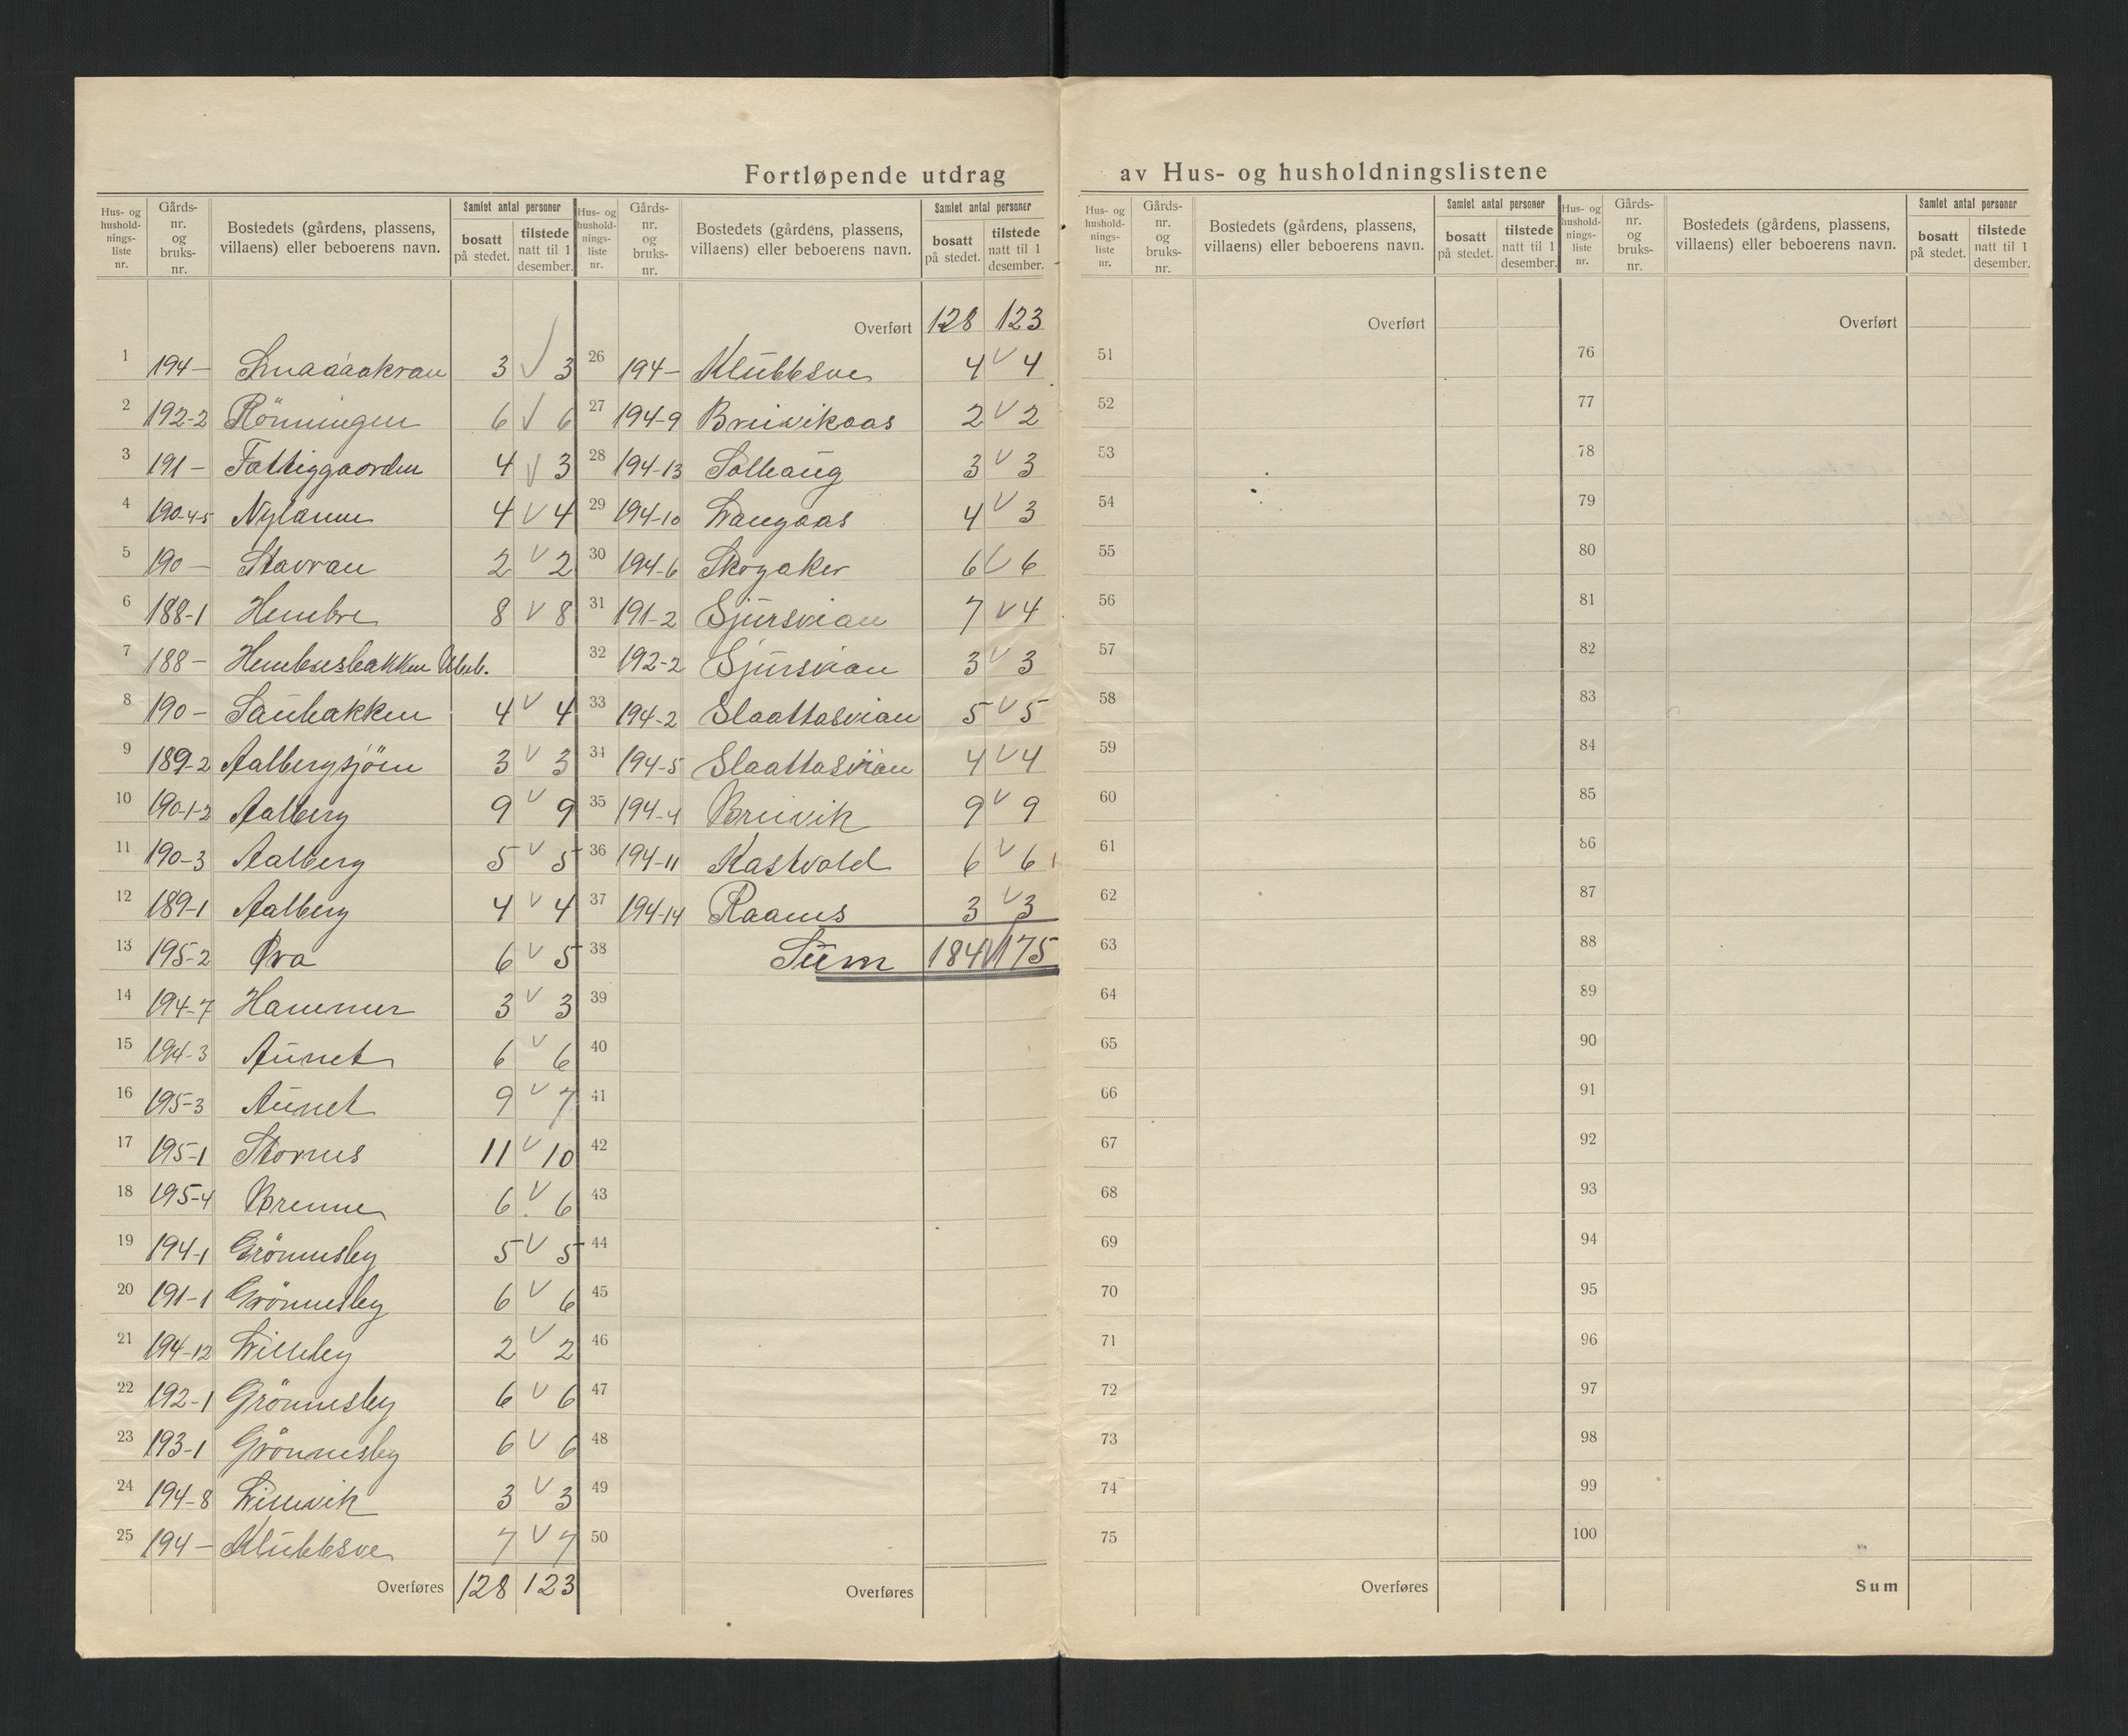 Fortløpende utdrag av Hus- og husholdningslistene
Hus- og hushold-nings-liste nr. | Gårds-nr. og bruks-nr. | Bostedets (gårdens, plassens, villaens) eller beboerens navn. | Samlet antal personer | bosatt på stedet. | tilstede natt til 1 desember.
1 194- Smaaaakran 3 √ 3
2 192-2 Rönningen 6 √ 6
3 191- Fattiggaarden 4 √ 3
4 190-4-5 Nylänne 4 V 4
5 190- Stavran 2 V 2
6 188-1 Hembre 8 V 8
7 188-
8 190- Saubakken 4 V 4
9 189-2 Aalbergsjöen 3 V 3
10 190-1-2 Aalberg 9 V 9
11 190-3 Aalberg 5 V 5
12 189-1 Aalberg 4 V 4
13 195-2 Øra 6 V 5
14 194-7 Hammer 3 V 3
15 194-3 Aunet 6 V 6
16 195-3 Aunet 9 V 7
17 195-1 Stornes 11 V 10
18 195-4 Brenne 6 V 6
19 194-1 Grönnesby 5 V 5
20 191-1 Grönnesby 6 V 6
21 194-12 2 V 2
22 192-1 Grönnesby 6 V 6
23 193-1 Grönnesby 6 V 6
24 194-8 3 V 3
25 194- Klubbsve 7 V 7
Overføres 128 123
Hus- og hushold-nings-liste nr. | Gårds-nr. og bruks-nr. | Bostedets (gårdens, plassens, villaens) eller beboerens navn. | Samlet antal personer | bosatt på stedet. | tilstede natt til 1 desember.
Overført 128 123
26 194- Klubbsve 4 V 4
27 194-9 Breivikaas 2 V 2
28 194-13 Solhaug 3 V 3
29 194-10 Langaas 4 V 3
30 194-6 Skogaker 6 V 6
31 191-2 Sjursvian 7 V 4
32 192-2 Sjursvian 3 V 3
33 194-2 Slaattasvian 5 V 5
34 194-5 Slaattasvian 4 V 4
35 194-4 Breivik 9 V 9
36 194-11 Kastvold 6 V 6
37 194-14 Raanes 3 V 3
38 Sum 184 V 175
39
40
41
42
43
44
45
46
47
48
49
50
Overføres
Hus- og hushold-nings-liste nr. | Gårds-nr. og bruks-nr. | Bostedets (gårdens, plassens, villaens) eller beboerens navn. | Samlet antal personer | bosatt på stedet. | tilstede natt til 1 desember.
Overført
51
52
53
54
55
56
57
58
59
60
61
62
63
64
65
66
67
68
69
70
71
72
73
74
75
Overføres
Hus- og hushold-nings-liste nr. | Gårds-nr. og bruks-nr. | Bostedets (gårdens, plassens, villaens) eller beboerens navn. | Samlet antal personer | bosatt på stedet. | tilstede natt til 1 desember.
Overført
76
77
78
79
80
81
82
83
84
85
86
87
88
89
90
91
92
93
94
95
96
97
98
99
100
Sum